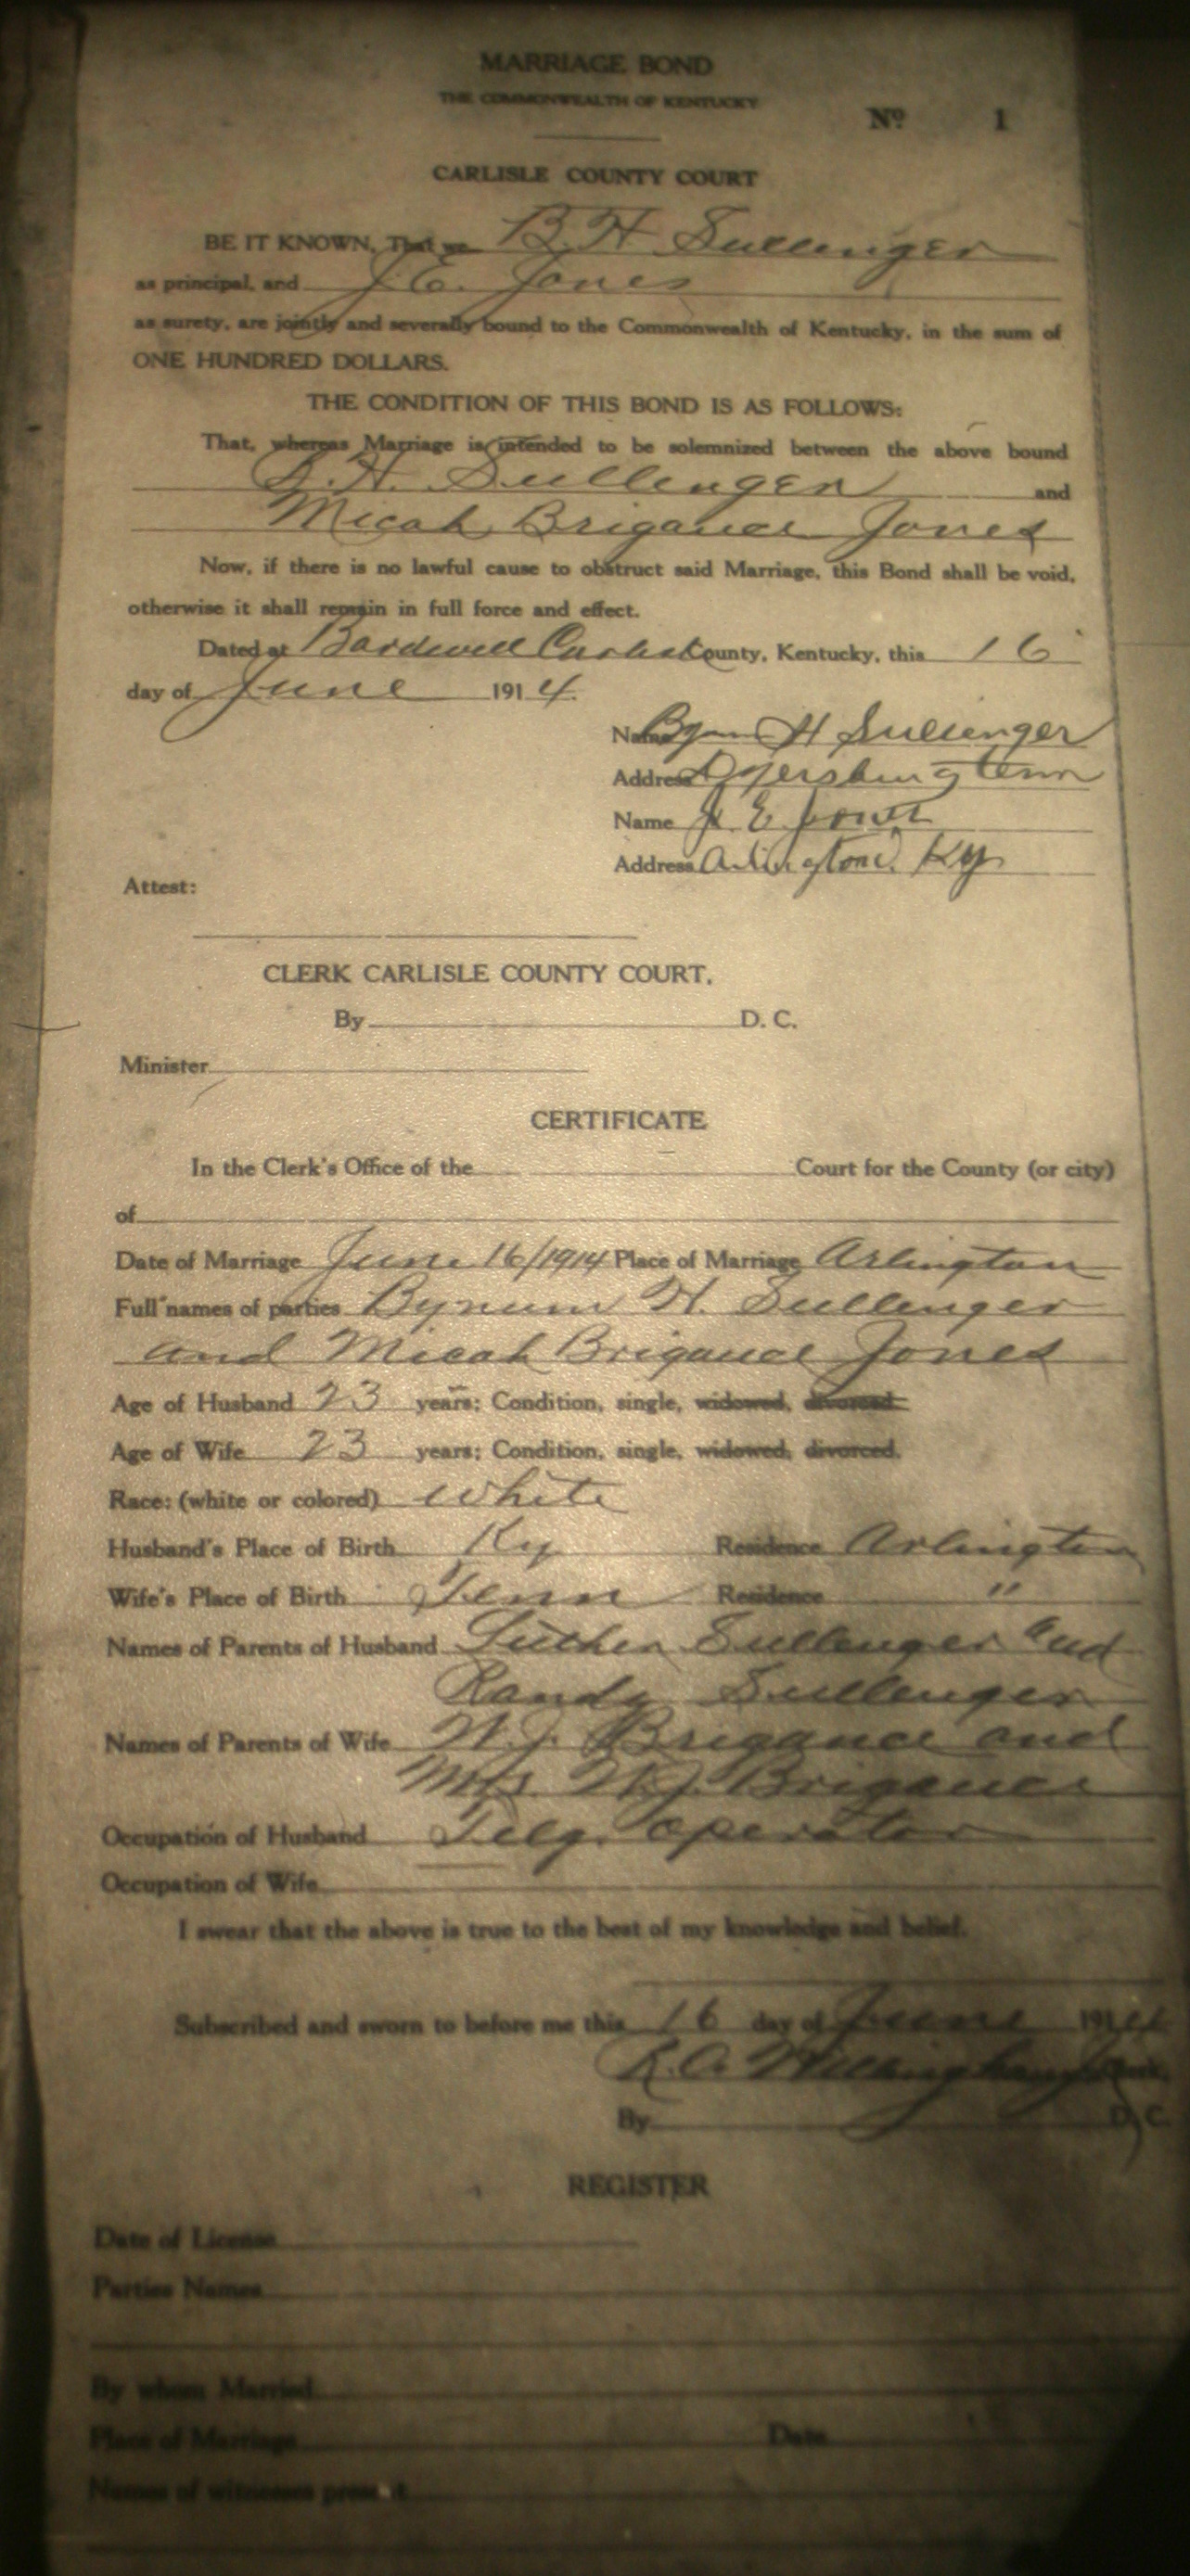 MARRIAGE BOND
THE COMMONWEALTH OF KENTUCKY
Nº 1
CARLISLE COUNTY COURT
BE IT KNOWN, That we B. H Sullenger
as principal, and J. E. Jones
as surety, are jointly and severally bound to the Commonwealth of Kentucky, in the sum of
ONE HUNDRED DOLLARS.
THE CONDITION OF THIS BOND IS AS FOLLOWS:
That, whereas Marriage is intended to be solemnized between the above bound
B. H. Sullenger and
Micah Brigance Jones
Now, if there is no lawful cause to obstruct said Marriage, this Bond shall be void,
otherwise it shall remain in full force and effect.
Dated at Bardwell Carlisle County, Kentucky, this 16
day of June 1914.
Name H Sullenger
Address Dyersburg Tenn
Name J. E. Jones
Address Arlington, Ky
Attest:
CLERK CARLISLE COUNTY COURT.
By D. C.
Minister
CERTIFICATE
In the Clerk's Office of the Court for the County (or city)
of
Date of Marriage June 16/1914 Place of Marriage Arlington
Full names of parties Bynum H. Sullenger
and Micah Brigance Jones
Age of Husband 23 years; Condition, single, widowed, divorced.
Age of Wife 23 years; Condition, single, widowed, divorced.
Race: (white or colored) White
Husband's Place of Birth Ky Residence Arlington
Wife's Place of Birth Tenn Residence "
Names of Parents of Husband Luther Sullenger and
Randy Sullenger
Names of Parents of Wife W. J. Brigance and
Mrs. W. J. Brigance
Occupation of Husband Telg. operator
Occupation of Wife
I swear that the above is true to the best of my knowledge and belief.
Subscribed and sworn to before me this 16 day of June 1914
By D. C.
REGISTER
Date of License
Parties Names
By whom Married
Place of Marriage Date
Names of witnesses present